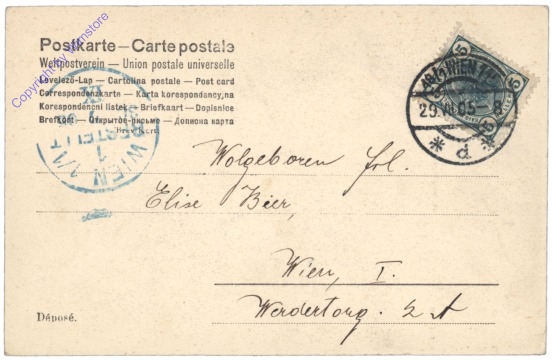 Postkarte – Carte postale
Weltpostverein – Union postale universelle
Levelező-Lap – Cartolina postale – Post card
Correspondenzkarte – Karta korespondancy,na
Korespondenční listek – Briefkaart – Dopisnice
Brefkort – Открытое-письмо – Дописна карта
Brevkort.
Copyright by wienstore
WIEN 1/1
BESTELLT
WIEN
29.VI.05–8
* d *
5
Wolgeboren frl.
Elise Bier,
Wien, I.
Werdertorg. 2 A
Déposé.